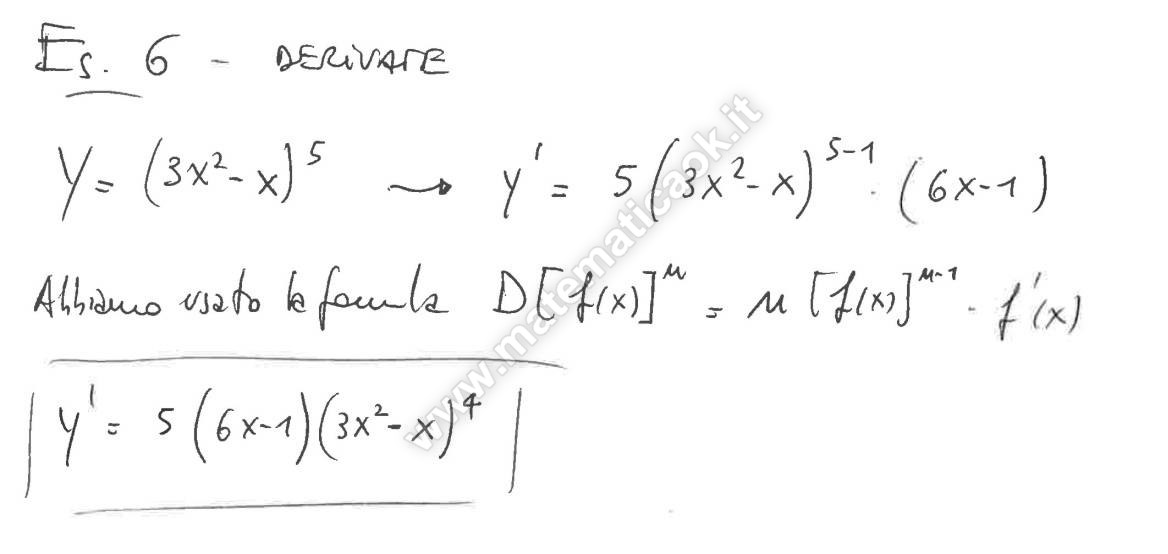 Es. 6 - DERIVATE
y = (3x² - x)⁵ → y' = 5(3x² - x)⁵⁻¹ · (6x-1)
Abbiamo usato la formula D[f(x)]ⁿ = n[f(x)]ⁿ⁻¹ · f'(x)
y' = 5(6x-1)(3x² - x)⁴
www.matematicaok.it